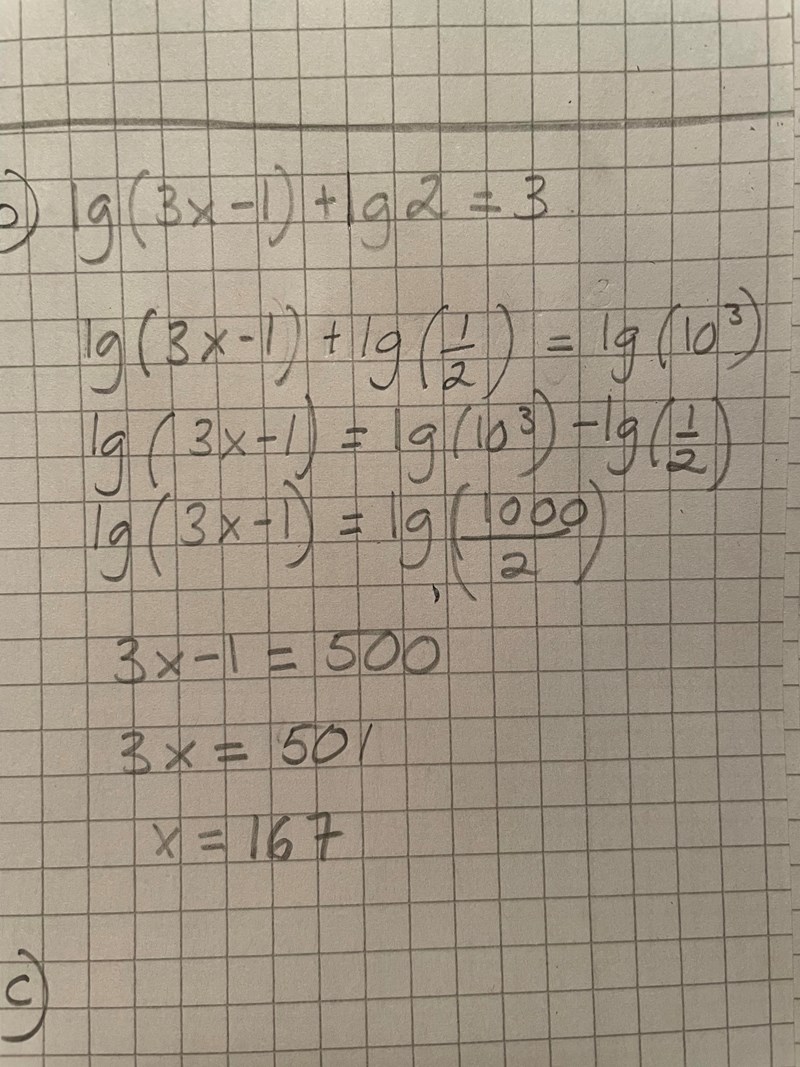 b) lg(3x-1) + lg 2 = 3
lg(3x-1) + lg(1/2) = lg(10³)
lg(3x-1) = lg(10³) - lg(1/2)
lg(3x-1) = lg(1000/2)
3x-1 = 500
3x = 501
x = 167
c)